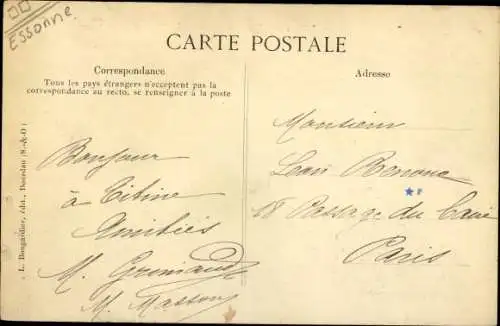 Essonne
CARTE POSTALE
Correspondance
Tous les pays étrangers n'acceptent pas la
correspondance au recto, se renseigner à la poste
Adresse
L. Bougardier, édit., Dourdan (S.-&-O.)
Bonjour
à Titine
Amitiés
M. Grimaud
M. Masson
Monsieur
Léon Renouc
18 Passage du Caire
Paris